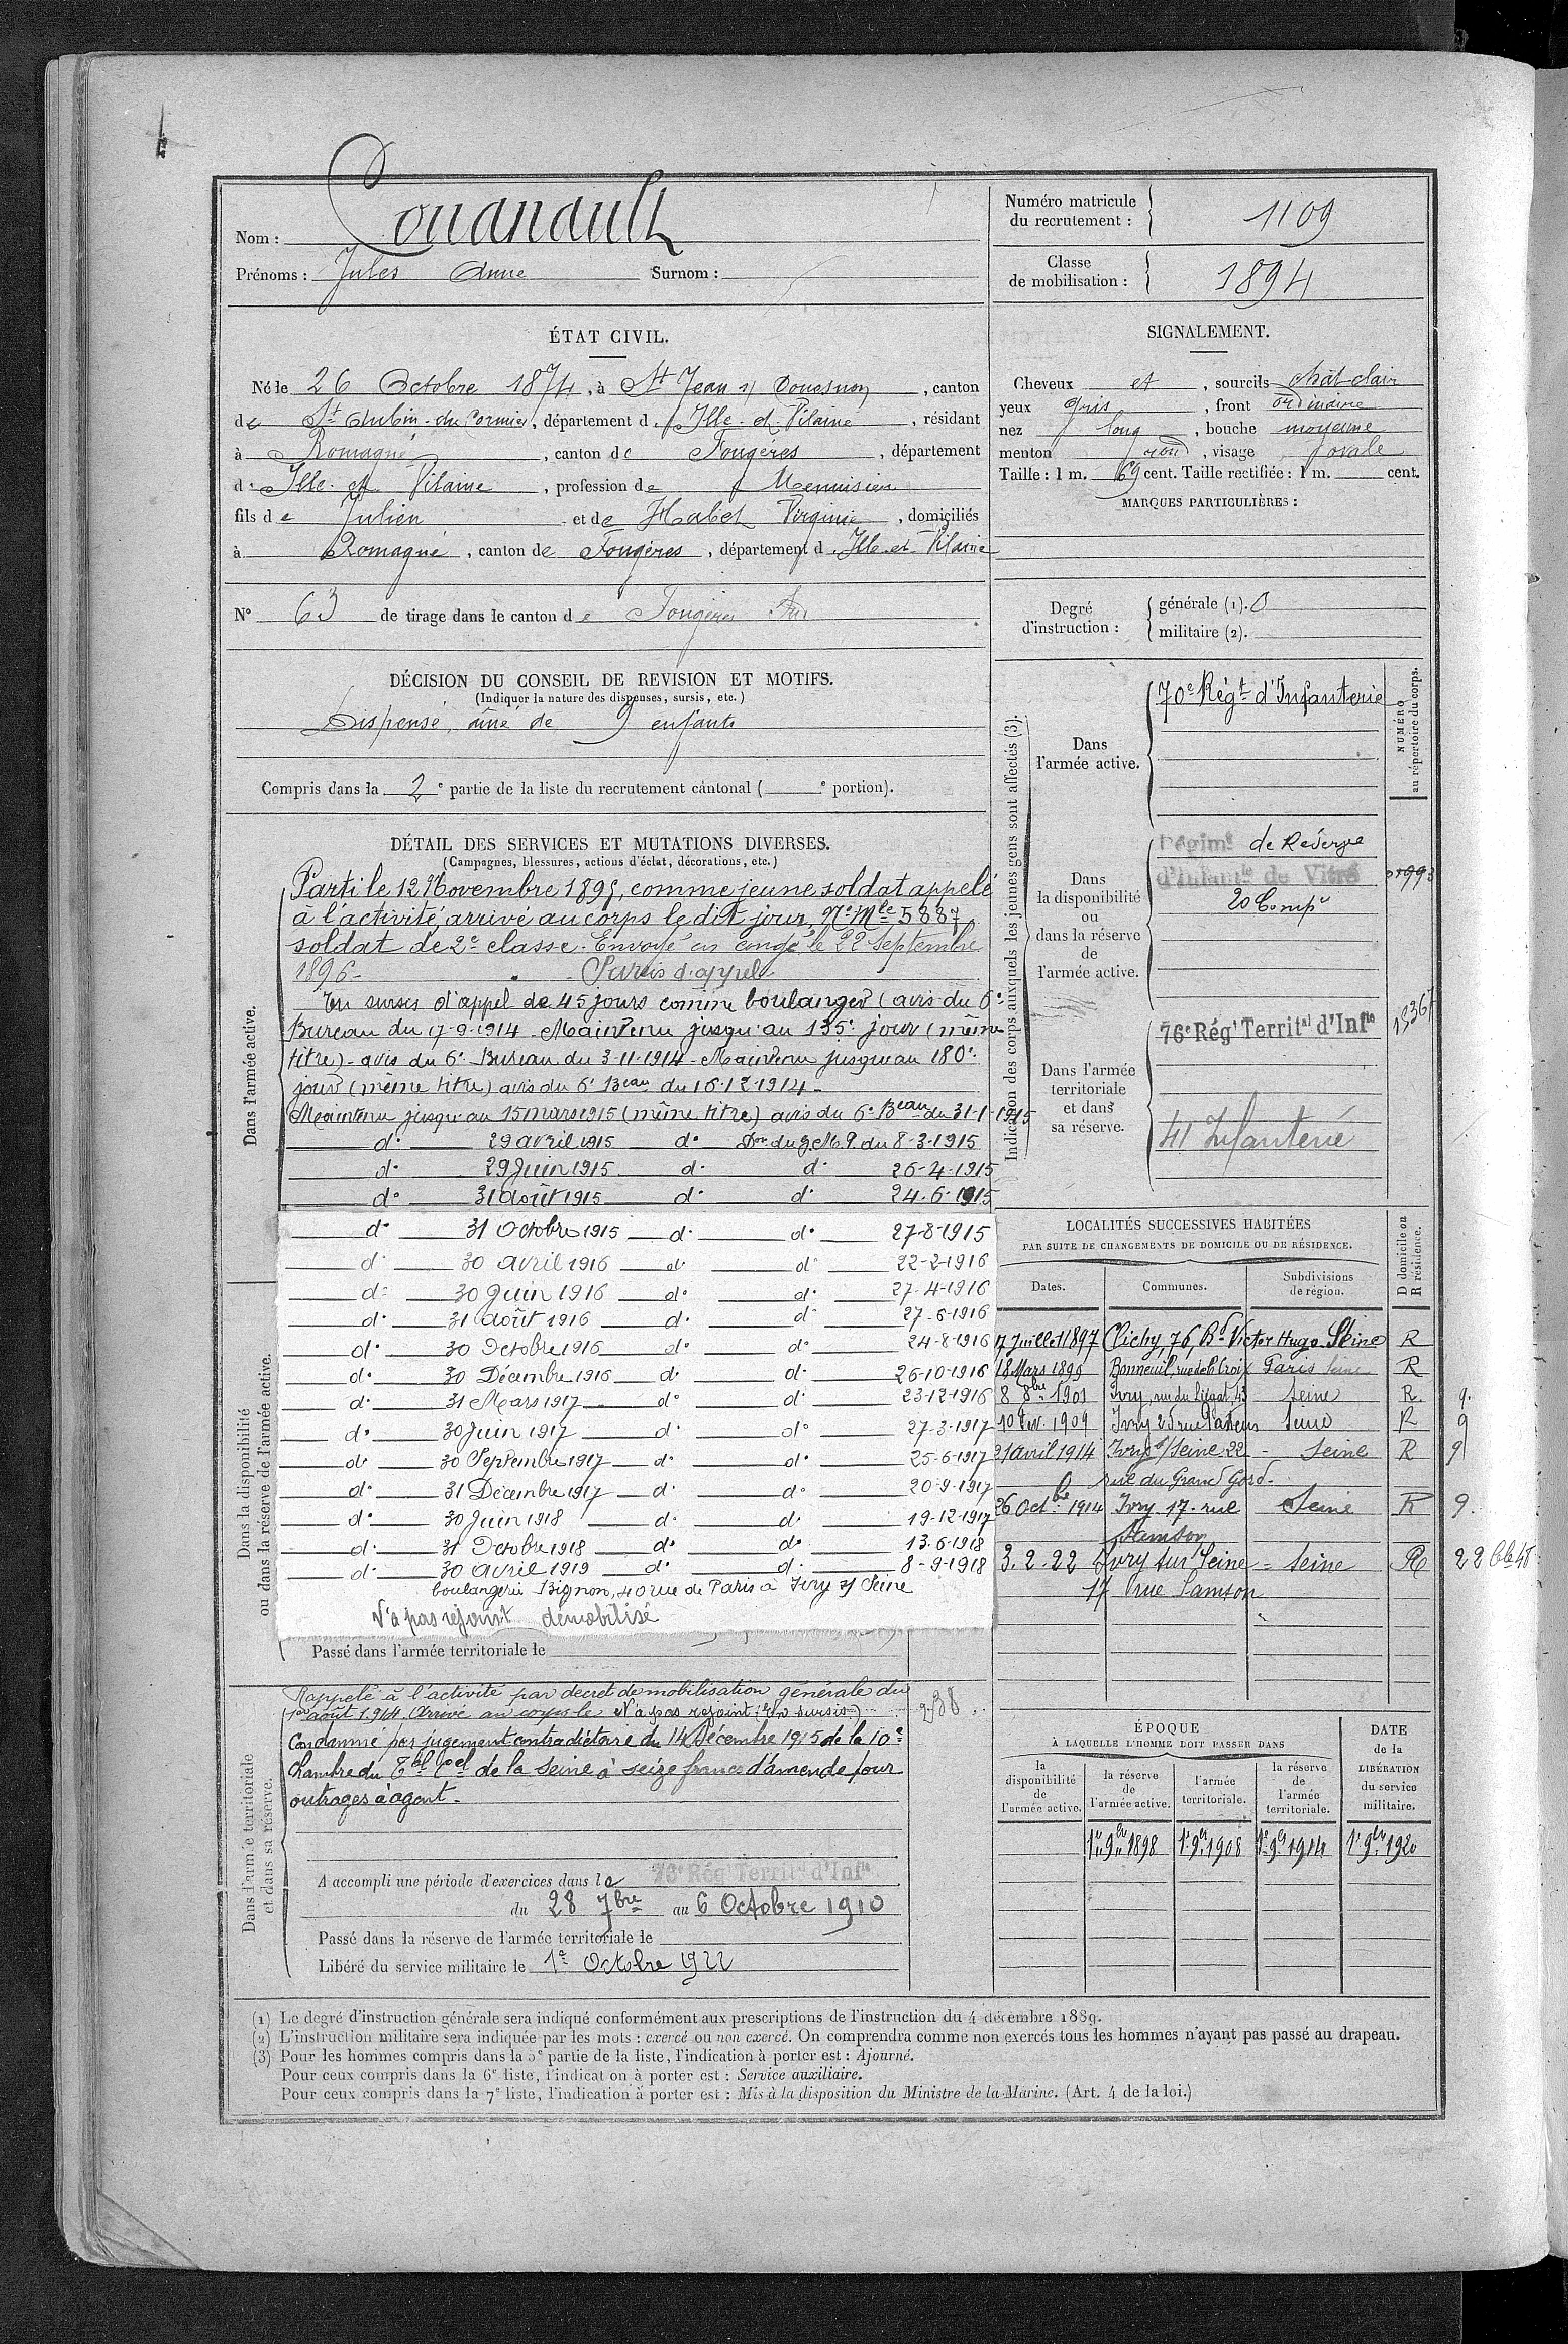 Nom : Couanault
Prénoms : Jules Anne Surnom :
Numéro matricule du recrutement : 1109
Classe de mobilisation : 1894
ÉTAT CIVIL.
Né le 26 Octobre 1874, à St Jean s/ Couesnon, canton
de St Aubin-du-Cormier, département d'Ille-et-Vilaine, résidant
à Romagné, canton de Fougères, département
d'Ille et Vilaine, profession de Menuisier
fils de Julien et de Habel Virginie, domiciliés
à Romagné, canton de Fougères, département d'Ille-et-Vilaine
N° 63 de tirage dans le canton de Fougères Sud
SIGNALEMENT.
Cheveux et, sourcils chât-clair
yeux gris, front ordinaire
nez long, bouche moyenne
menton rond, visage ovale
Taille : 1 m. 69 cent. Taille rectifiée : 1 m. cent.
MARQUES PARTICULIÈRES :
Degré d'instruction : générale (1). 0
militaire (2).
DÉCISION DU CONSEIL DE REVISION ET MOTIFS.
(Indiquer la nature des dispenses, sursis, etc.)
Dispensé, aîné de 9 enfants
Compris dans la 2e partie de la liste du recrutement cantonal ( e portion).
DÉTAIL DES SERVICES ET MUTATIONS DIVERSES.
(Campagnes, blessures, actions d'éclat, décorations, etc.)
Dans l'armée active.
Parti le 12 Novembre 1895, comme jeune soldat appelé
à l'activité, arrivé au corps le dit jour, N° Mle 5887,
soldat de 2e classe. Envoyé en congé le 22 Septembre
1896.
Sursis d'appel
En sursis d'appel de 45 jours comme boulanger (avis du 6e
Bureau du 17-9-1914 Maintenu jusqu'au 135e jour (même
titre) - avis du 6e Bureau du 3-11-1914 - Maintenu jusqu'au 180e
jour (même titre) avis du 6e Beau du 16-12-1914 -
Maintenu jusqu'au 15 mars 1915 (même titre) avis du 6e Beau du 31-1-1915
d° 29 avril 1915 d° Don du G.M.P. du 8-3-1915
d° 29 Juin 1915 d° d° 26-4-1915
d° 31 août 1915 d° d° 24-6-1915
d° 31 Octobre 1915 d° d° 27-8-1915
d° 30 avril 1916 d° d° 22-2-1916
d° 30 Juin 1916 d° d° 27-4-1916
d° 31 août 1916 d° d° 27-6-1916
d° 30 Octobre 1916 d° d° 24-8-1916
d° 30 Décembre 1916 d° d° 26-10-1916
d° 31 Mars 1917 d° d° 23-12-1916
d° 30 Juin 1917 d° d° 27-3-1917
d° 30 Septembre 1917 d° d° 25-6-1917
d° 31 Décembre 1917 d° d° 20-9-1917
d° 30 Juin 1918 d° d° 19-12-1917
d° 31 Octobre 1918 d° d° 13-6-1918
d° 30 avril 1919 d° d° 8-9-1918
boulangerie Bignon, 40 rue de Paris à Ivry s/ Seine
N'a pas rejoint démobilisé
Dans la disponibilité ou dans la réserve de l'armée active.
Passé dans l'armée territoriale le
Dans l'armée territoriale et dans sa réserve.
Rappelé à l'activité par décret de mobilisation générale du
1er août 1914. Arrivé au corps le N'a pas rejoint (En sursis)
238
Condamné par jugement contradictoire du 14 Décembre 1915 de la 10e
Chambre du Tbal Coel de la Seine à seize francs d'amende pour
outrages à agent.
A accompli une période d'exercices dans le 76e Régt Territal d'Infie
du 28 7bre au 6 Octobre 1910
Passé dans la réserve de l'armée territoriale le
Libéré du service militaire le 1er Octobre 1922
Indication des corps auxquels les jeunes gens sont affectés (3).
NUMÉRO au répertoire du corps.
Dans l'armée active.
70e Régt d'Infanterie
Dans la disponibilité ou dans la réserve de l'armée active.
Régimt de Réserve
d'Infantie de Vitré
20 Compie
Dans l'armée territoriale et dans sa réserve.
76e Régt Territal d'Infie
41 Infanterie
LOCALITÉS SUCCESSIVES HABITÉES
PAR SUITE DE CHANGEMENTS DE DOMICILE OU DE RÉSIDENCE.
Dates. Communes. Subdivisions de région. D domicile ou R résidence.
17 Juillet 1897 Clichy, 76, Bd Victor Hugo Seine R
18 Mars 1899 Bonneuil, rue de la Croix Paris Seine R
8 8bre 1901 Ivry, rue du Liégat, 43 Seine R. 9.
10 Fév. 1909 Ivry 25 rue Pasteur Seine R 9
21 avril 1914 Ivry s/ Seine 22 - Seine R 9
rue du Grand Gord -
26 Octbre 1914 Ivry 17 rue Seine R 9.
Samson
3.2.22 Ivry sur Seine = Seine R
17 rue Samson
ÉPOQUE
À LAQUELLE L'HOMME DOIT PASSER DANS
la disponibilité de l'armée active.
la réserve de l'armée active.
l'armée territoriale.
la réserve de l'armée territoriale.
DATE de la LIBÉRATION du service militaire.
1er 9bre 1898 1er 9bre 1908 1er 9bre 1914 1er 9bre 1920
(1) Le degré d'instruction générale sera indiqué conformément aux prescriptions de l'instruction du 4 décembre 1889.
(2) L'instruction militaire sera indiquée par les mots : exercé ou non exercé. On comprendra comme non exercés tous les hommes n'ayant pas passé au drapeau.
(3) Pour les hommes compris dans la 5e partie de la liste, l'indication à porter est : Ajourné.
Pour ceux compris dans la 6e liste, l'indication à porter est : Service auxiliaire.
Pour ceux compris dans la 7e liste, l'indication à porter est : Mis à la disposition du Ministre de la Marine. (Art. 4 de la loi.)